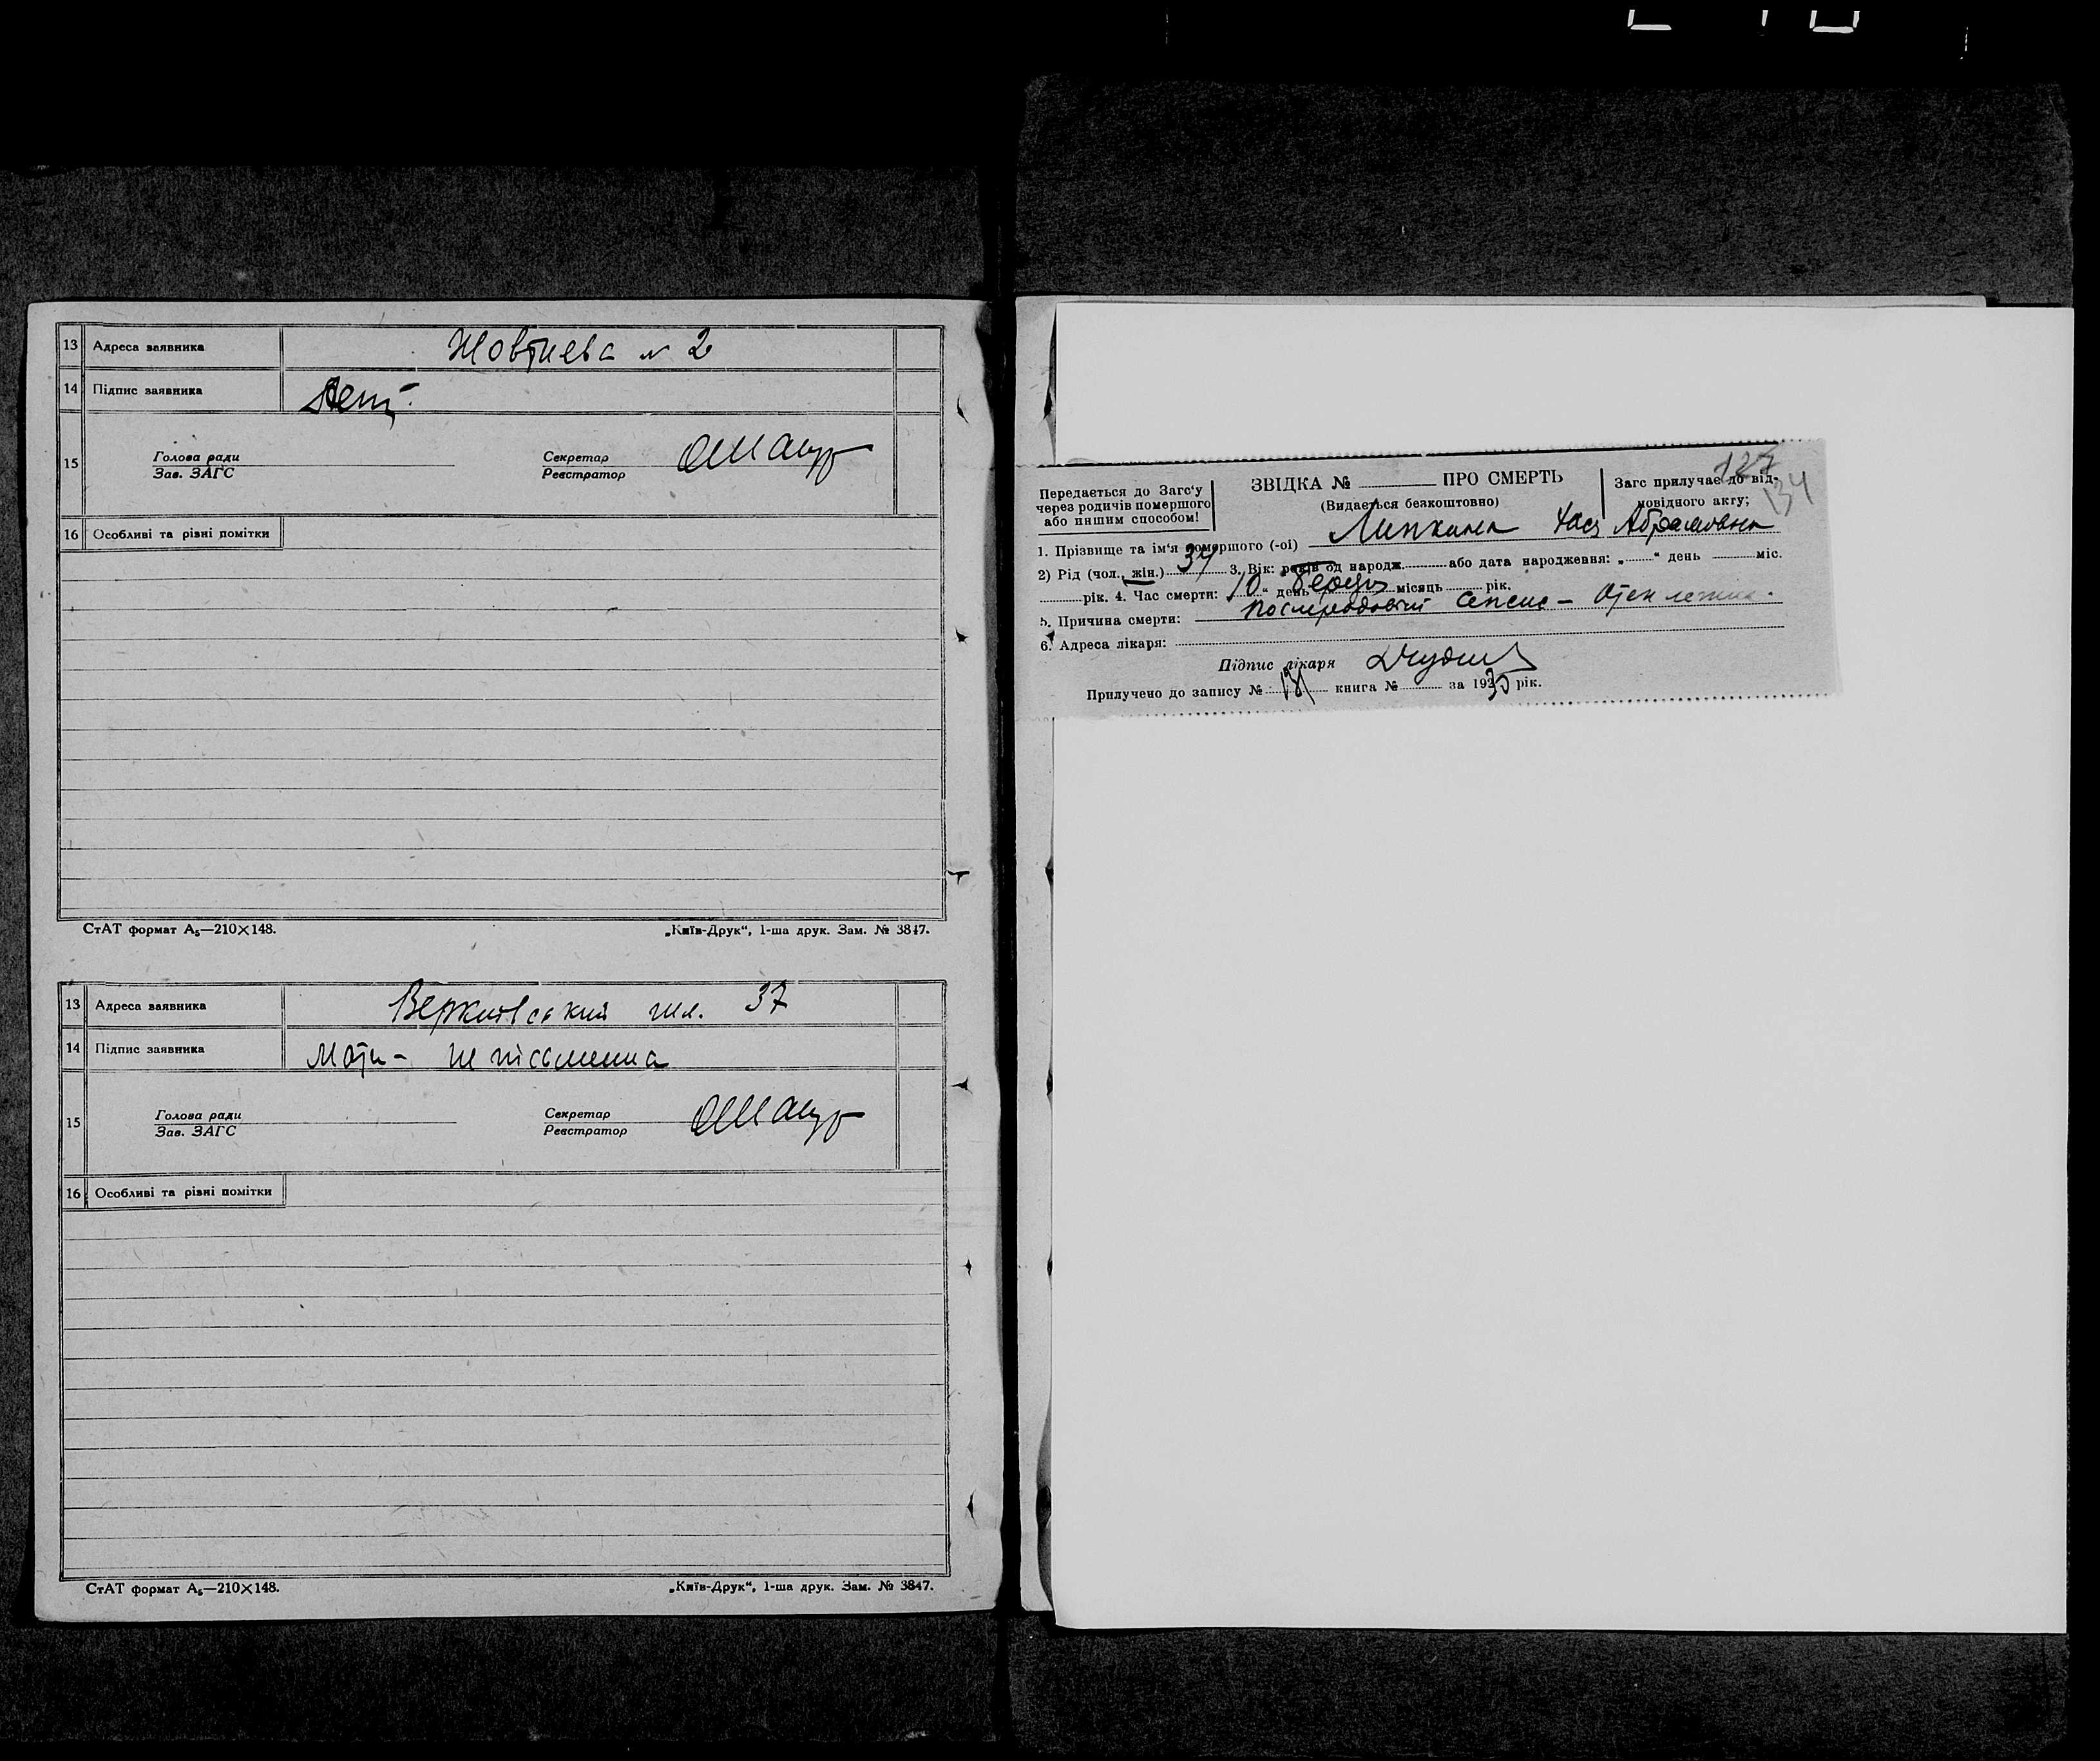 13 Адреса заявника Жовтнева № 2
14 Підпис заявника
15 Голова ради Секретар
Зав. ЗАГС Реєстратор
16 Особливі та різні помітки
СтАТ формат А₅—210×148. „Київ-Друк“, 1-ша друк. Зам. № 3847.
13 Адреса заявника Веркиївський шл. 37
14 Підпис заявника Мати - не письменна
15 Голова ради Секретар
Зав. ЗАГС Реєстратор
16 Особливі та різні помітки
СтАТ формат А₅—210×148. „Київ-Друк“, 1-ша друк. Зам. № 3847.
127
134
Передається до Загс'у
через родичів помершого
або иншим способом!
ЗВІДКА № ПРО СМЕРТЬ
(Видається безкоштовно)
Загс прилучає до від-
повідного акту;
1. Прізвище та ім'я помершого (-ої) Липкина Хася Абрамовна
2) Рід (чол., жін.) 34 3. Вік: років од народж. або дата народження: „ “ день міс.
рік. 4. Час смерти: „10“ день березня місяць рік.
5. Причина смерти: послеродовий сепсис - Отек легких.
6. Адреса лікаря:
Підпис лікаря
Прилучено до запису № 131 книга № за 1935 рік.